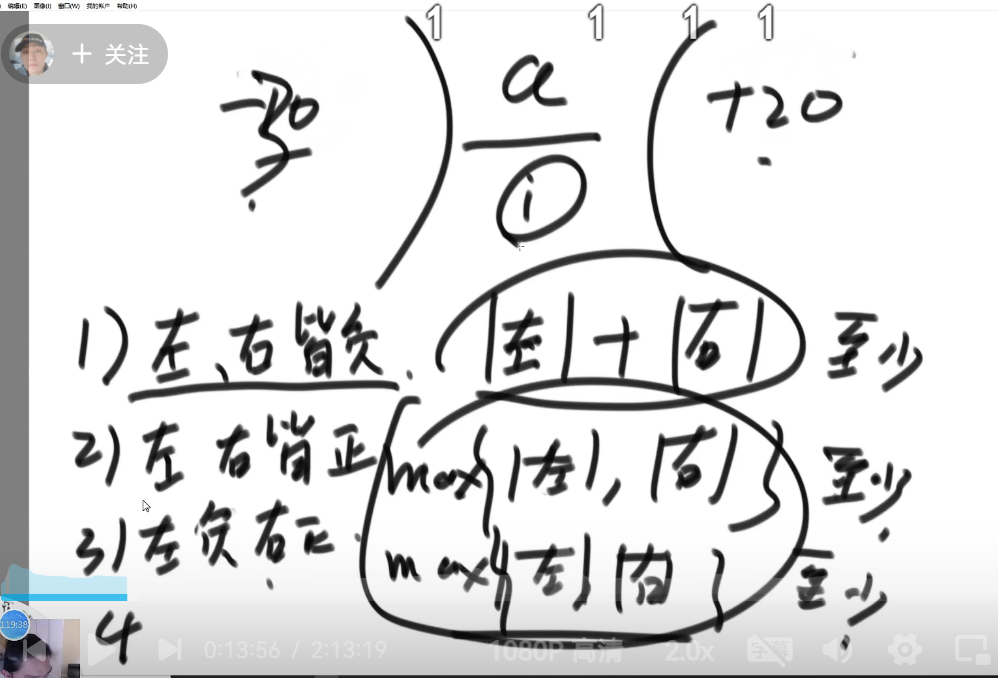 编辑(E) 图像(I) 窗口(W) 我的帐户 帮助(H)
1 1 1 1
+ 关注
a
+20
i
1) 左、右皆负. |左| + |右| 至少
2) 左 右皆正 max{|左|, |右|} 至少.
3) 左负右正. max{|左| |右|} 至少.
4
1:19:38
0:13:56 / 2:13:19 1080P 高清 2.0x 字幕